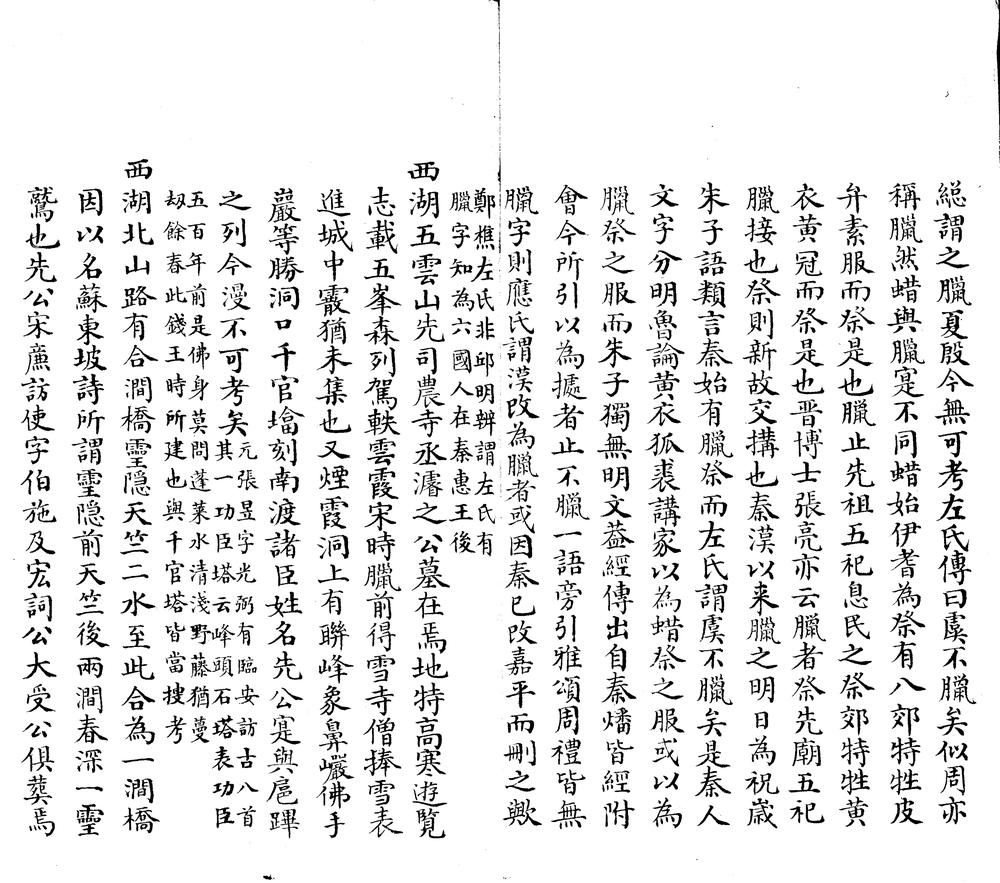 緫謂之臘夏殷今無可考左氏傳曰虞不臘矣似周亦
稱臘然蜡與臘寔不同蜡始伊耆為祭有八郊特牲皮
弁素服而祭是也臘止先祖五祀息民之祭郊特牲黄
衣黄冠而祭是也晋博士張亮亦云臘者祭先廟五祀
臘接也祭則新故交搆也秦漢以来臘之明日為祝歲
朱子語類言秦始有臘祭而左氏謂虞不臘矣是秦人
文字分明魯論黄衣狐裘講家以為蜡祭之服或以為
臘祭之服而朱子獨無明文葢經傳出自秦燔皆經附
會今所引以為㩀者止不臘一語旁引雅頌周禮皆無
臘字則應氏謂漢改為臘者或因秦已改嘉平而刪之歟
鄭樵左氏非邱明辨謂左氏有
臘字知為六國人在秦惠王後
西湖五雲山先司農寺丞濬之公墓在焉地特高寒遊覽
志載五峯森列駕軼雲霞宋時臘前得雪寺僧捧雪表
進城中霰猶未集也又煙霞洞上有聯峰象鼻巖佛手
巖等勝洞口千官塔刻南渡諸臣姓名先公寔與扈蹕
之列今漫不可考矣
元張昱字光弼有臨安訪古八首
其一功臣塔云峰頭石塔表功臣
五百年前是佛身莫問蓬萊水清淺野藤猶蔓
刼餘春此錢王時所建也與千官塔皆當搜考
西湖北山路有合澗橋靈隐天竺二水至此合為一澗橋
因以名蘇東坡詩所謂靈隐前天竺後兩澗春深一靈
鷲也先公宋㢘訪使字伯施及宏詞公大受公俱葬焉